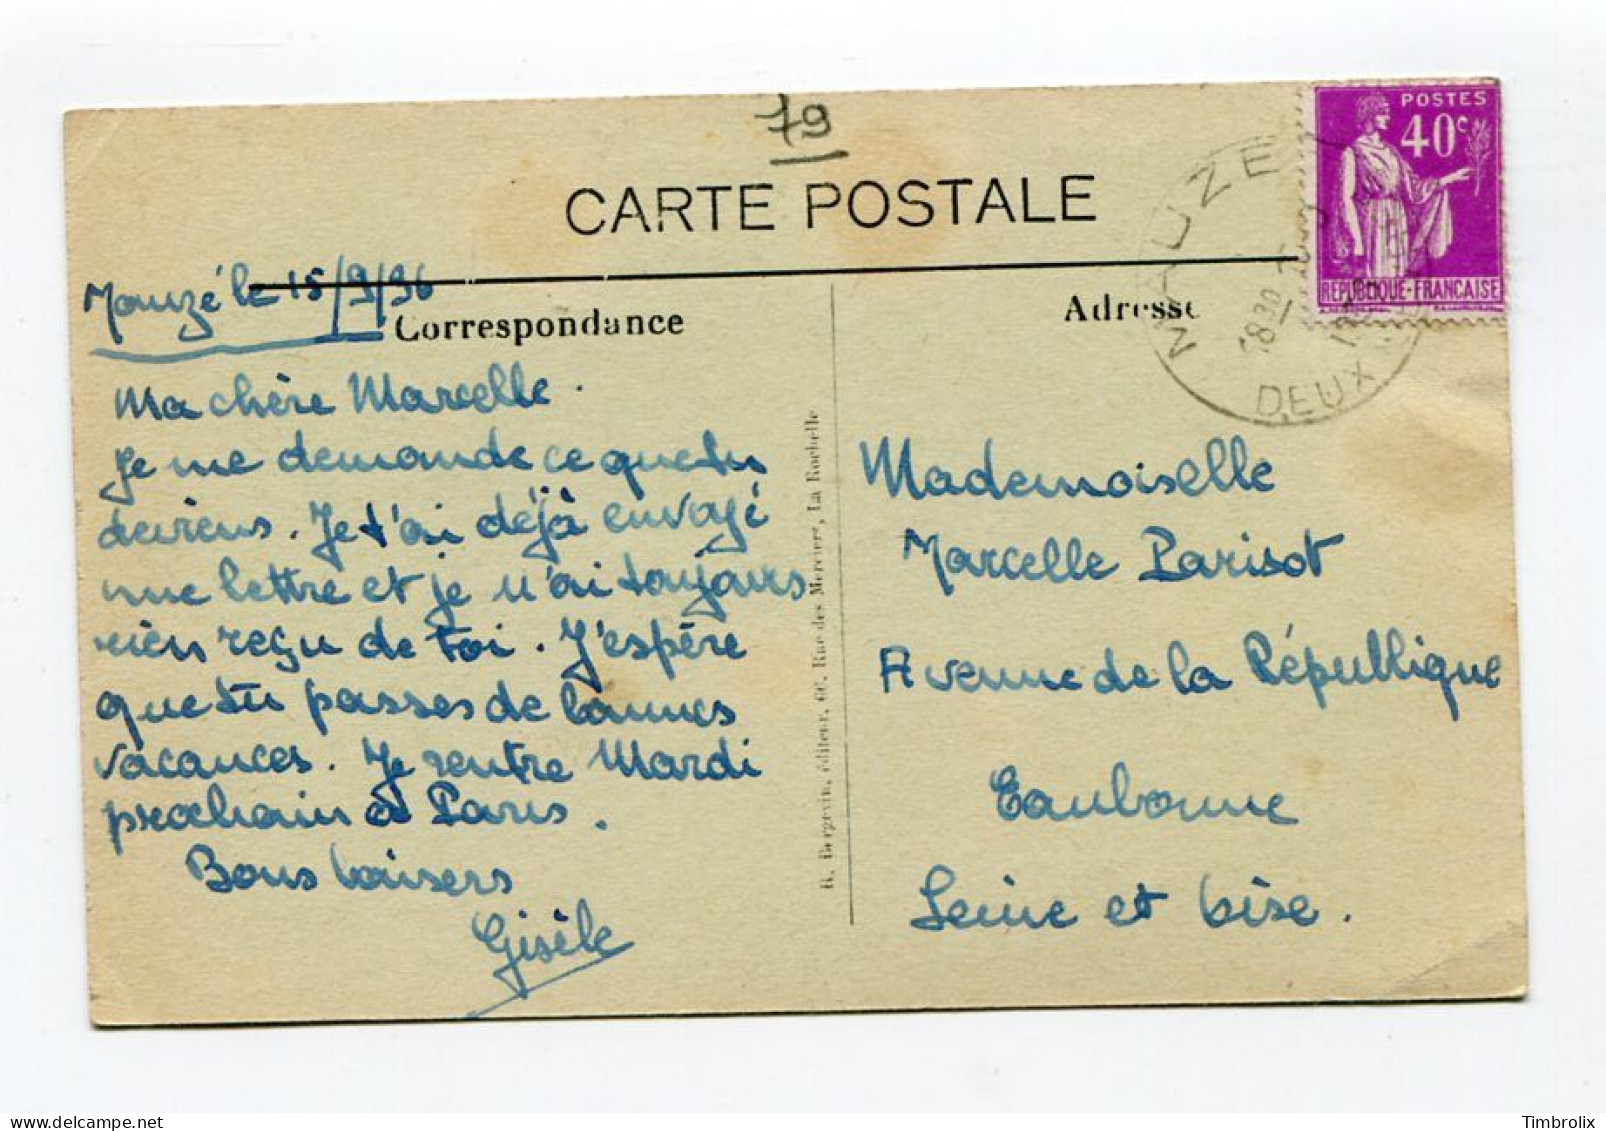 79
CARTE POSTALE
Mauzé le 15/9/36
Correspondance
Ma chère Marcelle.
Je me demande ce que tu
deviens. Je t'ai déjà envoyé
une lettre et je n'ai toujours
rien reçu de toi. J'espère
que tu passes de bonnes
vacances. Je rentre Mardi
prochain à Paris.
Bons baisers
Gisèle
R. Bergevin, éditeur, 60, Rue des Merciers, La Rochelle
Adresse
MAUZE
18 30
DEUX
POSTES
40c
REPUBLIQUE-FRANCAISE
Mademoiselle
Marcelle Parisot
Avenue de la République
Eaubonne
Seine et Oise.
Timbrolix